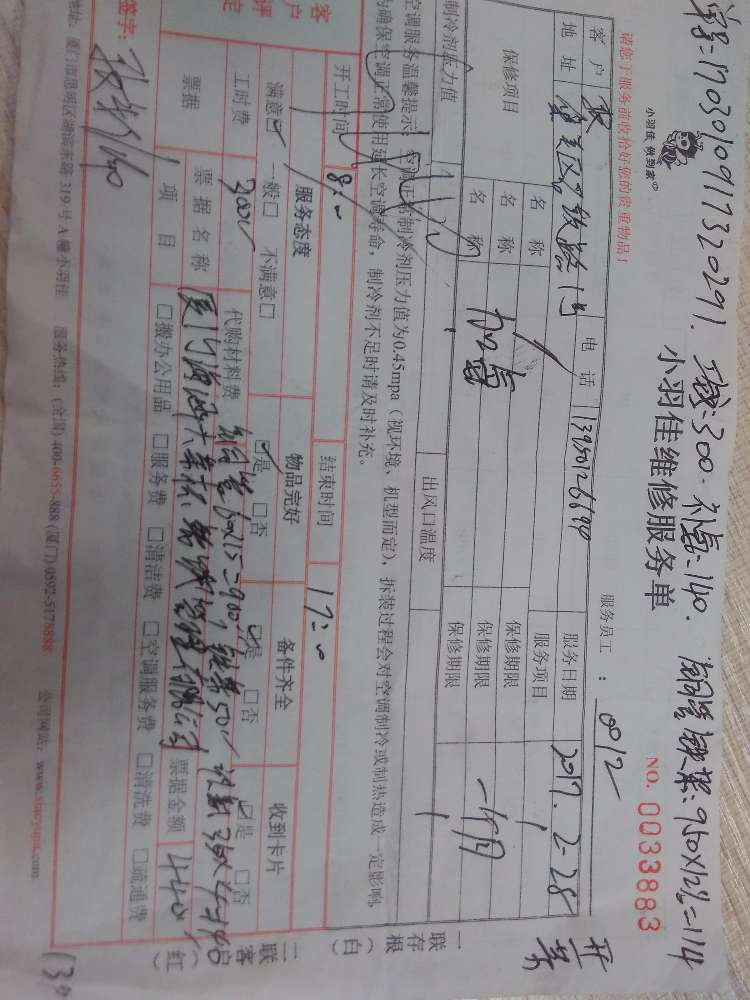 单号:1703010917320291. 工费:300. 补氟:140. 铜管铁架:950X12%=114
小羽佳 做到家
小羽佳维修服务单
NO. 0033883
请您于服务前收拾好您的贵重物品!
服务员工: 8012
客户 电话 服务日期 2017.2-28
地址 服务项目
保修项目 名称 加氟 保修期限 一个月
名称 保修期限
名称 保修期限
制冷剂压力值 出风口温度
空调服务温馨提示:空调正常制冷剂压力值为0.45mpa(视环境、机型而定),拆装过程会对空调制冷或制热造成一定影响,
为确保空调正常使用延长空调寿命,制冷剂不足时请及时补充。
开工时间 8:00 结束时间 17:00
客户评定
服务态度 物品完好 备件齐全 收到卡片
满意☑ 一般□ 不满意□ ☑是 □否 ☑是 □否 ☑是 □否
工时费 300 代购材料费
票据 票据名称 票据金额 440
项目 □搬办公用品 □服务费 □清洁费 □空调服务费 □清洗费 □疏通费
签字:
地址:厦门市思明区湖滨东路319号A幢小羽佳 服务热线:(全国)400-6655-888 (厦门)0592-5178888 公司网站:
一联存根(白)
二联客户(红)